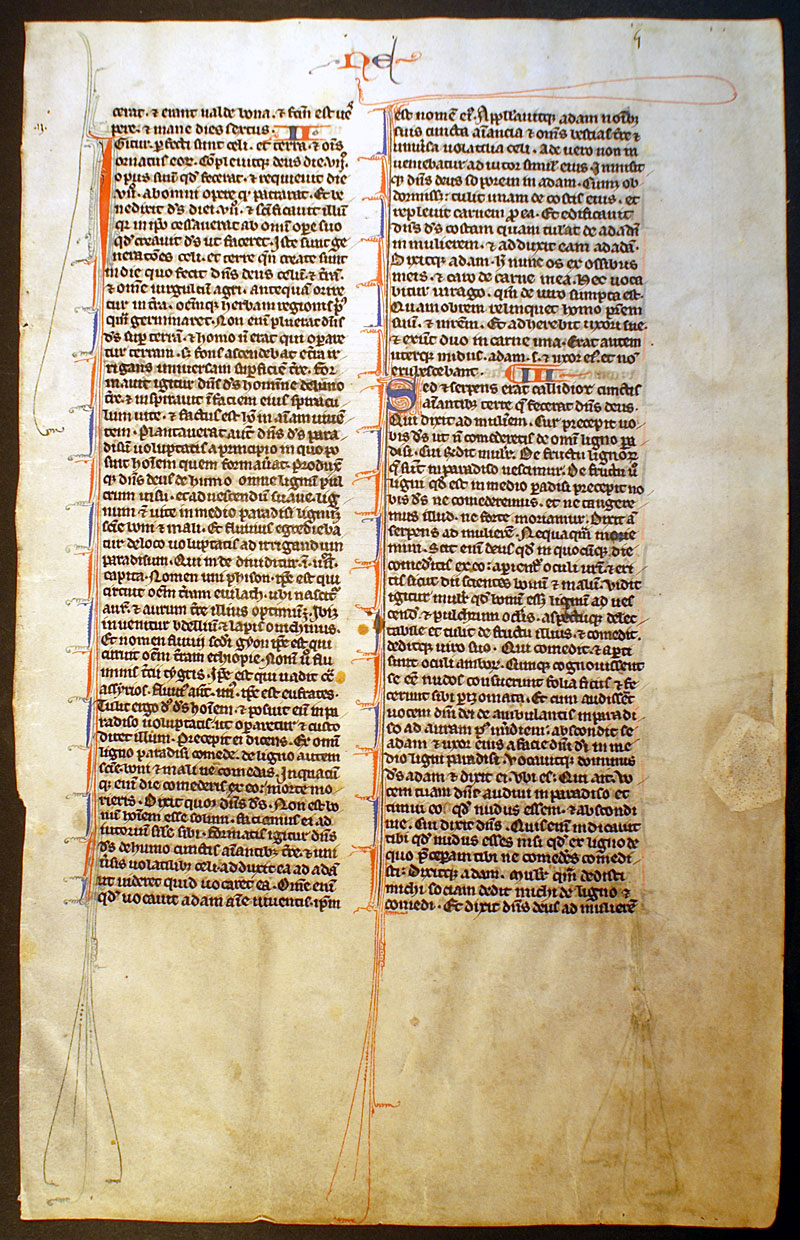 ne
cerat. & erant valde bona. & fcm est uesp
pere. & mane dies sextus. II
Igitur pfecti sunt celi. et terra. & oms
ornatus eor. Cõpleuitq; deus die .vii.
opus suũ qđ fecerat. & requieuit die
.vii. ab omni opere qđ patrarat. Et be
nedixit ds diei .vii. & scificauit illũ
qr in ipo cessauerat ab omi ope suo
qđ creauit ds ut faceret. Iste sunt ge
nerações celi. et terre qn create sunt
in die quo fecit dñs deus celũ. & trã.
& omne uirgultũ agri. antequã orire
tur in tra. oemq; herbam regionis pus
quã germinaret. Non enĩ pluerat dñs
ds sup terrã. & homo nõ erat qui opare
tur terram. s; fons ascendebat e tra ir
rigans uniuersam supficiẽ tre. For
mauit igitur dñs ds hominẽ de limo
tre. & inspirauit in faciem eius spiracu
lum uite. & factus est hõ in aĩam uiuẽ
tem. Plantauerat aut dñs ds para
disũ uoluptatis a principio in quo po
suit hoĩem quem formauat. Produx
q; dñs deus de humo omne lignũ pul
crum uisu. et ad uescendũ suaue. lig
num ẽ uite in medio paradisi lignũq;
scie boni & mali. Et fluuius egredieba
tur de loco uoluptatis ad irrigandum
paradisum. Qui inde diuiditur in .iiii.
capita. Nomen uni phison. ipe est qui
circuit oem tram euilath. ubi nascitr
aurũ. & aurum tre illius optimũ ẽ. Ibiq;
inuenitur bdelliũ & lapis onichinus.
Et nomen fluuii scdi gyon ipe est qui
circuit oem tram ethiopie. Nomẽ ũ flu
minis tcii tygris. Ipe est qui uadit cõt
assyrios. fluuius aut .iiii. ipe est eufrates.
Tulit ergo dñs ds hoĩem. & posuit eum in pa
radiso uoluptatis. ut oparetur & custo
diret illum. Precepit ei dicens. Ex omi
ligno paradisi comede. de ligno autem
scie boni & mali ne comedas. In quacũ
q; enĩ die comederis ex eo; morte mo
rieris. Dixit quoq; dñs ds. Non est bo
nũ hoĩem esse solum. faciamus ei ad
iutoriũ simle sibi. formatis igitur dñs
ds de humo cunctis aĩantibz tre. & uni
uersis uolatilibz celi. adduxit ea ad adã
ut uideret quid uocaret ea. Omẽ enĩ
qđ uocauit adam aĩe uiuentis. ipm
est nomẽ ei. Appellauitq; adam noĩbz
suis cuncta aĩancia & oms bestias tre &
uniusa uolatilia celi. Ade uero non in
ueniebatur adiutor similis eius. Inmisit
q; dñs deus soporem in adam. Cumq; ob
dormisset; tulit unam de costis eius. et
repleuit carnem p ea. Et edificauit
dñs ds costam quam tulat de adam
in mulierem. & adduxit eam ad adã.
Dixitq; adam. Hoc nunc os ex ossibus
meis. & caro de carne mea. Hec uoca
bitur uirago. qm de uiro sumpta est.
Quamobrem relinquet homo prẽm
suũ. & mrẽm. Et adherebit uxori sue.
& erũt duo in carne una. Erat autem
uterq; nudus. adam. s. & uxor ei. et nõ
erubescebant. III
Sed & serpens erat callidior cunctis
aĩantibz terre q fecerat dñs deus.
Qui dixit ad mulierẽ. Cur precepit uo
bis ds ut nõ comederetis de omi ligno pa
disi. Cui rñdit mulr. De fructu lignorz
q sunt in paradiso uescimur. De fructu ũ
ligni qđ est in medio padisi precepit no
bis ds ne comederemus. et ne tangere
mus illud. ne forte moriamur. Dixit aũ
serpens ad mulierẽ. Nequaqm morie
mini. Scit enĩ deus qđ in quocũq; die
comedetis ex eo; apientr oculi urĩ. & eri
tis sicut dii scientes bonũ & malũ. Vidit
igitur mulr qđ bonũ esset lignũ ad ues
cendũ. & pulchrum oclis. aspectuq; delec
tabile. et tulit de fructu illius. & comedit.
deditq; uiro suo. Qui comedit. & apti
sunt oculi amborz. Cumq; cognouissent
se eẽ nudos consuerunt folia ficus & fe
cerunt sibi pizomata. Et cum audissẽt
uocem dñi dei deambulantis in paradi
so ad auram pt midiem. abscondit se
adam & uxor eius a facie dñi di in me
dio ligni paradisi. Vocauitq; dominus
ds adam & dixit ei. Vbi es; Qui ait. Vo
cem tuam dñe audiui in paradiso et
timui eo qđ nudus essem. & abscondi
me. Cui dixit dñs. Quis enĩ indicauit
tibi qđ nudus esses nisi qđ ex ligno de
quo pceperam tibi ne comedes comedi
sti; Dixitq; adam. mulr quã dedisti
michi sociam dedit michi de ligno &
comedi. Et dixit dñs deus ad mulierẽ